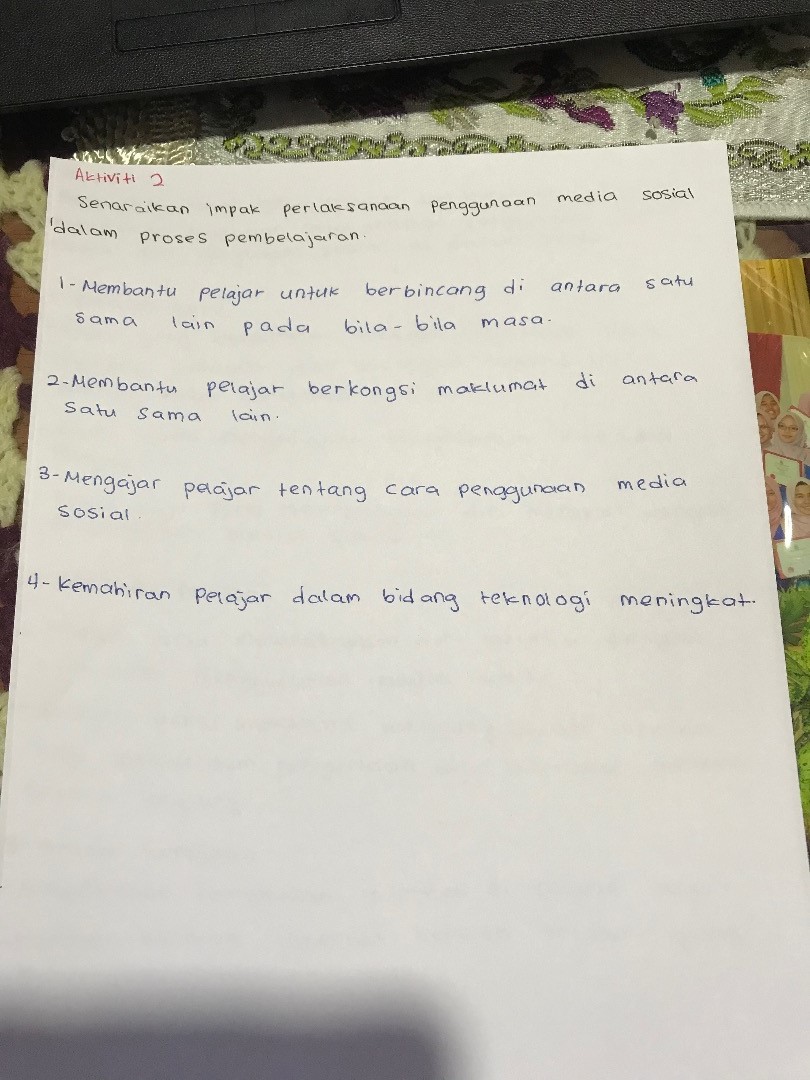 Aktiviti 2
Senaraikan impak perlaksanaan penggunaan media sosial
dalam proses pembelajaran.
1- Membantu pelajar untuk berbincang di antara satu
sama lain pada bila-bila masa.
2-Membantu pelajar berkongsi maklumat di antara
satu sama lain.
3-Mengajar pelajar tentang cara penggunaan media
sosial.
4- Kemahiran pelajar dalam bidang teknologi meningkat.